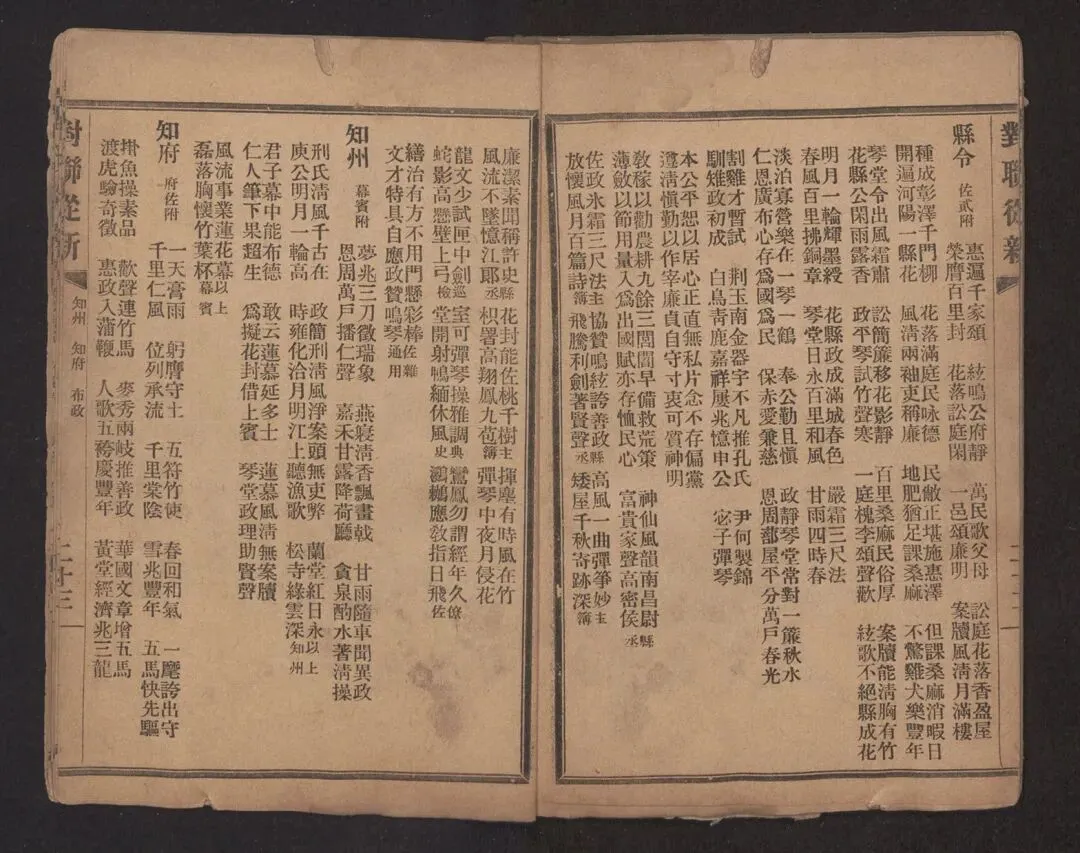 對聯從新
縣令 佐貳附
惠遍千家頌 絃鳴公府靜 萬民歌父母 訟庭花落香盈屋
榮膺百里封 花落訟庭閑 一邑頌廉明 案牘風清月滿樓
種成彭澤千門柳 花落滿庭民咏德 民敝正堪施惠澤 但課桑麻消暇日
開遍河陽一縣花 風清兩袖吏稱廉 地肥猶足課桑麻 不驚雞犬樂豐年
琴堂令出風霜肅 訟簡簾移花影靜 百里桑麻民俗厚 案牘能清胸有竹
花縣公閑雨露香 政平琴試竹聲寒 一庭槐李頌聲歡 絃歌不絕縣成花
明月一輪輝墨綬 花縣政成滿城春色 嚴霜三尺法
春風百里拂銅章 琴堂日永百里和風 甘雨四時春
淡泊寡營樂在一琴一鶴 奉公勤且慎 政靜琴堂常對一簾秋水
仁恩廣布心存為國為民 保赤愛兼慈 恩周蔀屋平分萬戶春光
割雞才暫試 荆玉南金器宇不凡推孔氏 尹何製錦
馴雉政初成 白鳥青鹿嘉祥屢兆憶申公 宓子彈琴
本公平恕以居心正直無私片念不存偏黨
遵清慎勤以作宰廉貞自守寸衷可質神明
敎稼以勸農耕九餘三閭閻早備救荒策 神仙風韻南昌尉 縣
薄斂以節用量入為出國賦亦存恤民心 富貴家聲高密侯 丞
佐政氷霜三尺法 主 協贊鳴絃誇善政 縣 高風一曲彈箏妙 主
放懷風月百篇詩 簿 飛騰利劍著賢聲 丞 矮屋千秋寄跡深 簿
廉潔素聞稱許史 縣 花封能佐桃千樹 主 揮麈有時風在竹
風流不墜憶江郞 丞 枳署高翔鳳九苞 簿 彈琴中夜月侵花
龍文少試匣中劍 巡 室可彈琴操雅調 典 鸞鳳勿謂經年久 僚
蛇影高懸壁上弓 檢 堂開射鴨緬休風 史 鴻鵠應敎指日飛 佐
繕治有方不用門懸彩棒 佐雜
文才特具自應政贊鳴琴 通用
知州 幕賓附
夢兆三刀徵瑞象 燕寢清香飄畫戟 甘雨隨車聞異政
恩周萬戶播仁聲 嘉禾甘露降荷廳 貪泉酌水著清操
刑氏清風千古在 政簡刑清風淨案頭無吏弊 蘭堂紅日永 以上
庾公明月一輪高 時雍化洽月明江上聽漁歌 松寺綠雲深 知州
君子幕中能布德 敢云蓮慕延多士 蓮慕風清無案牘
仁人筆下果超生 為擬花封借上賓 琴堂政理助賢聲
風流事業蓮花幕 以上
磊落胸懷竹葉杯 幕賓
知府 府佐附
一天膏雨 躬膺守土 五符竹使 春回和氣 一麾誇出守
千里仁風 位列承流 千里棠陰 雪兆豐年 五馬快先驅
掛魚操素品 歡聲連竹馬 麥秀兩岐推善政 華國文章增五馬
渡虎驗奇徵 惠政入蒲鞭 人歌五袴慶豐年 黃堂經濟兆三龍
對聯從新
知州 知府 布政
二十三